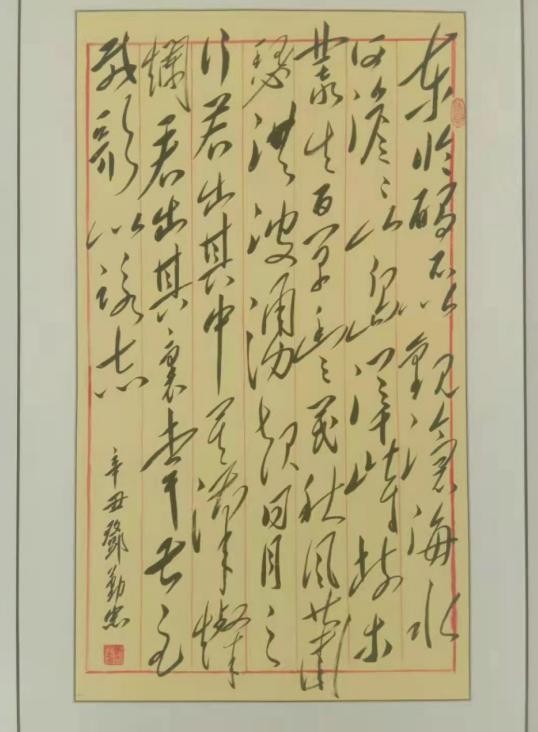 东临碣石以观沧海水
何澹々山岛竦峙树木
丛生百草丰茂秋风萧
瑟洪波涌起日月之
行若出其中星漢燦
爛若出其裏幸甚至
哉歌以詠志
辛丑鄧勤忠